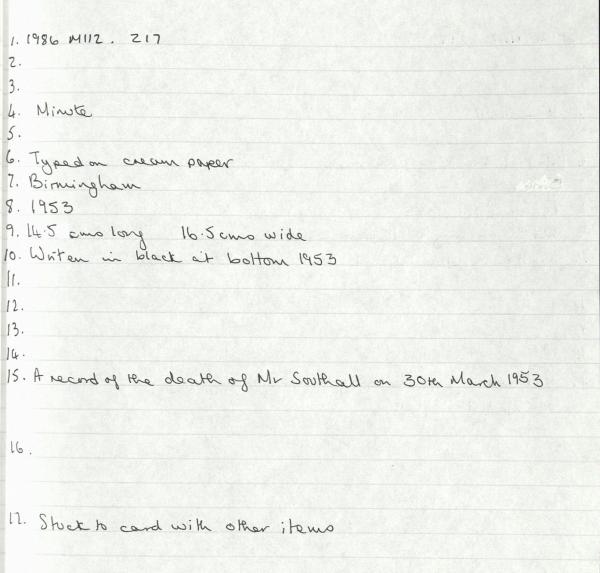 1. 1986 M112. 217
2.
3.
4. Minute
5.
6. Typed on cream paper
7. Birmingham
8. 1953
9. 14.5 cms long 16.5 cms wide
10. Writen in black at bottom 1953
11.
12.
13.
14.
15. A record of the death of Mr Southall on 30th March 1953
16.
17. Stuck to card with other items